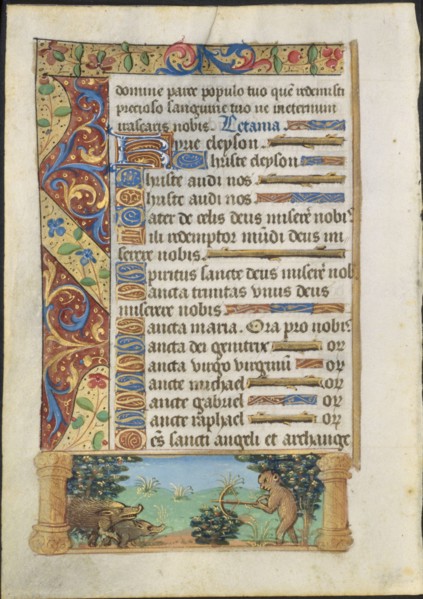 domine parce populo tuo quē redemisti
precioso sanguine tuo ne ineternum
irascaris nobis. Letania.
Kyrie eleyson
Christe eleyson
Christe audi nos
Christe audi nos
Pater de celis deus miserē nobis
Fili redemptor mūdi deus mi
serere nobis.
Spiritus sancte deus miserē nob
Sancta trinitas unus deus
miserere nobis
Sancta maria. Ora pro nobis.
Sancta dei genitrix or
Sancta virgo virginū or
Sancte michael or
Sancte gabriel or
Sancte raphael or
Oēs sancti angeli et archange